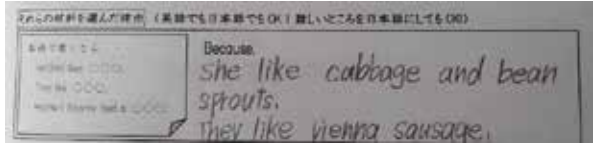 それらの材料を選んだ理由 (英語でも日本語でもOK！難しいところを日本語にしてもOK)
英語で書くなら
○○○.
They like ○○○.
○○○.
Because,
she like cabbage and bean
sprouts.
They like vienna sausage.